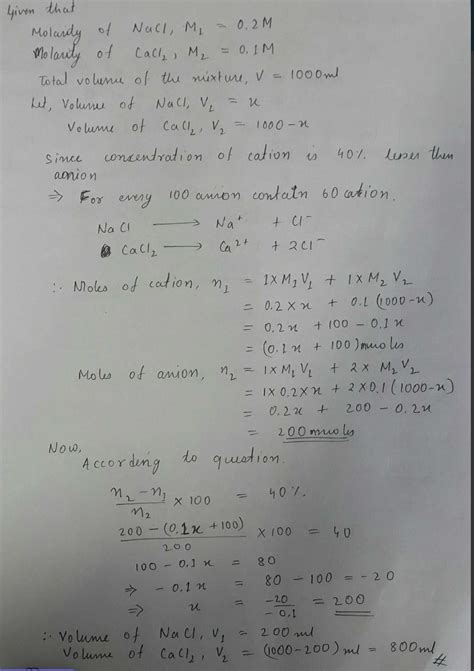 Given that
Molarity of NaCl, M₁ = 0.2M
Molarity of CaCl₂, M₂ = 0.1M
Total volume of the mixture, V = 1000ml
Let, Volume of NaCl, V₂ = x
Volume of CaCl₂, V₂ = 1000-x
Since concentration of cation is 40% lesser then
anion
⇒ For every 100 anion contain 60 cation.
NaCl ⟶ Na⁺ + Cl⁻
CaCl₂ ⟶ Ca²⁺ + 2Cl⁻
∴ Moles of cation, n₁ = 1×M₁V₁ + 1×M₂V₂
= 0.2×x + 0.1(1000-x)
= 0.2x + 100 - 0.1x
= (0.1x + 100) mmoles
Moles of anion, n₂ = 1×M₁V₁ + 2×M₂V₂
= 1×0.2×x + 2×0.1(1000-x)
= 0.2x + 200 - 0.2x
= 200 mmoles
Now,
According to question.
n₂ - n₁ / n₂ × 100 = 40%
200 - (0.1x + 100) / 200 × 100 = 40
100 - 0.1x = 80
⇒ - 0.1x = 80 - 100 = -20
⇒ x = -20 / -0.1 = 200
∴ Volume of NaCl, V₁ = 200 ml
Volume of CaCl₂, V₂ = (1000-200) ml = 800ml
#